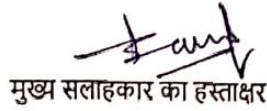 मुख्य सलाहकार का हस्ताक्षर